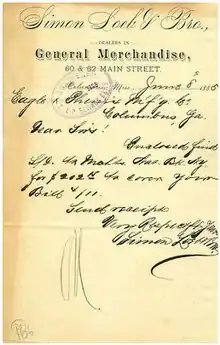 Simon Loeb & Bro.,
DEALERS IN
General Merchandise,
60 & 62 MAIN STREET.
Columbus, Miss., June 5th 1885
Eagle & Phenix Mf'g Co
Columbus, Ga.
Dear Sirs!
Enclosed find
S/D. on
for $ 202.75 to cover your
Bill 4/11.
Send receipt
Very Respectfully Yours
Simon Loeb & Bro